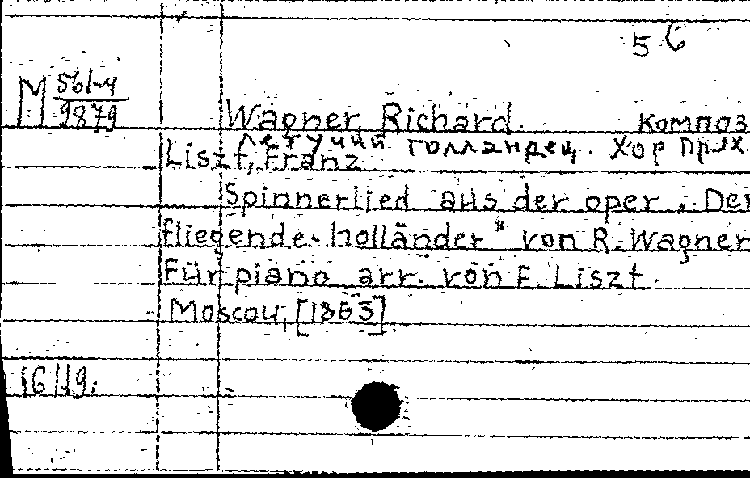 56
М 561-4
9879
Wagner, Richard. Композ
Летучий голландец. Хор прях
Liszt, Franz
Spinnerlied aus der oper „Der
fliegende holländer" von R. Wagner
Für piano arr. von F. Liszt.
Moscou, [1863]
16/19.